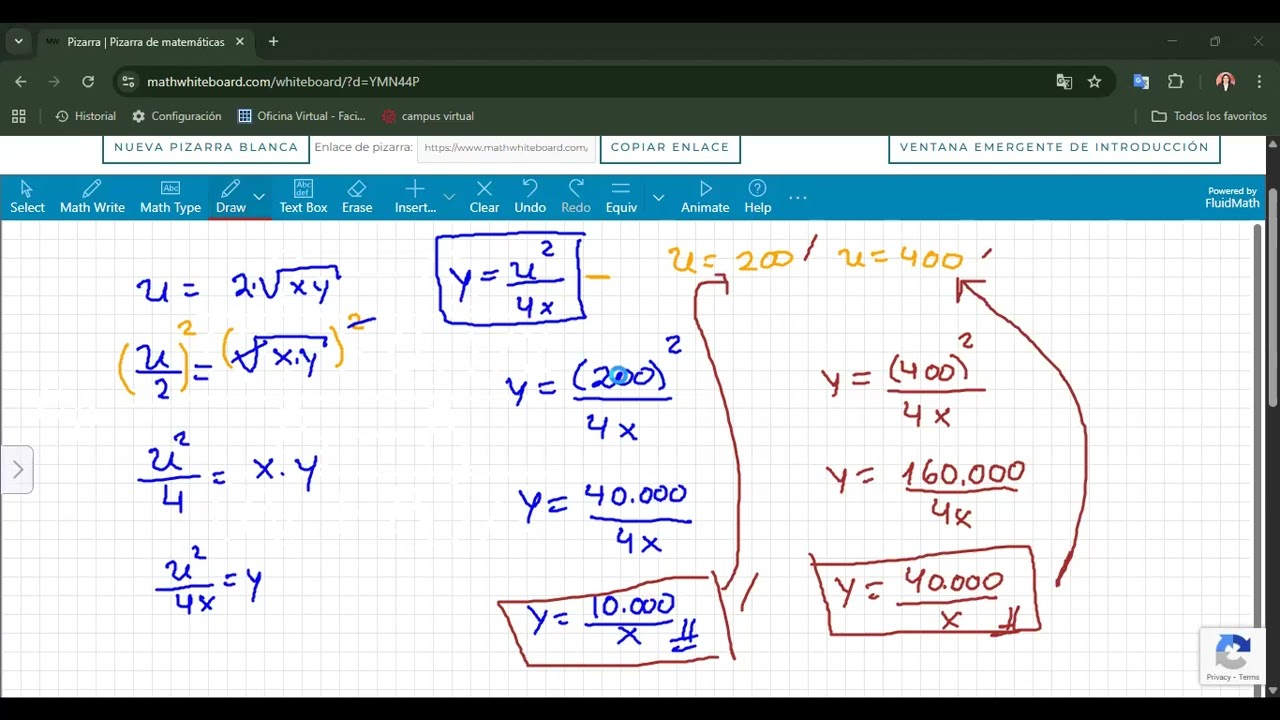 Pizarra | Pizarra de matemáticas
mathwhiteboard.com/whiteboard/?d=YMN44P
Historial Configuración Oficina Virtual - Faci... campus virtual Todos los favoritos
NUEVA PIZARRA BLANCA Enlace de pizarra: https://www.mathwhiteboard.com/ COPIAR ENLACE VENTANA EMERGENTE DE INTRODUCCIÓN
Select Math Write Math Type Draw Text Box Erase Insert... Clear Undo Redo Equiv Animate Help ...
Abc
Abc def
Powered by
FluidMath
u = 2·√xy
(u/2)² = (√x·y)²
u²/4 = x·y
u²/4x = y
y = u²/4x
u = 200 / u = 400
y = (200)²/4x
y = 40.000/4x
y = 10.000/x
y = (400)²/4x
y = 160.000/4x
y = 40.000/x
Privacy - Terms